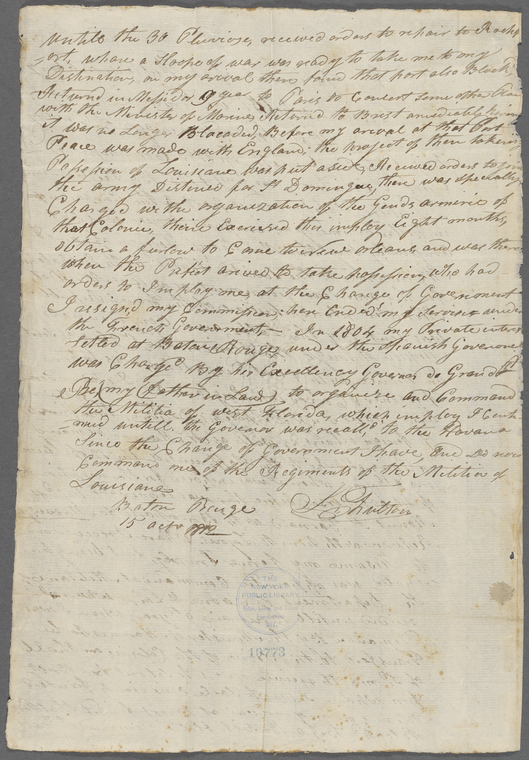 untill the 30 Pluviose, received orders to repair to Roch
-ort, where a Sloop of war was ready to take me to my
Distination, on my arival there found that port also Block
Returnd in Messidor 9 year to Paris to Consert some other
with the Minister of Marine, Returnd to Brest
it was no Longer Blocaded, Before my arival at that Port
Peace was made with England, the project of then taken
Possession of Louisiana was put aside, Received orders to
the army Distined for St Domingue, there was specially
Charged with the organization of the Gends armerie of
that Colonie, there Exercised this imploy Eight months,
obtain a furlow to Come to new orleans and was there
when the Prefet arived to take possession, who had
orders to Imploy me, at the Change of Government
I resigned my Commission, here Ended my Services under
the French Government - In 1804 my Private
settled at Baton Rouge, under the Spanish Government
was Charged By his Excellency Governor de Grand
Pre (my Father in Law) to organize and Command
the Militia of west Florida, which imploy I Cont
nued untill the Governor was recalld to the Havana
Since the Change of Government I have and do now
Command one of the Regiments of the Militia of
Louisiana
Baton Rouge
15 octr 1812
Fulton
THE
NEW YORK
PUBLIC LIBRARY
10773